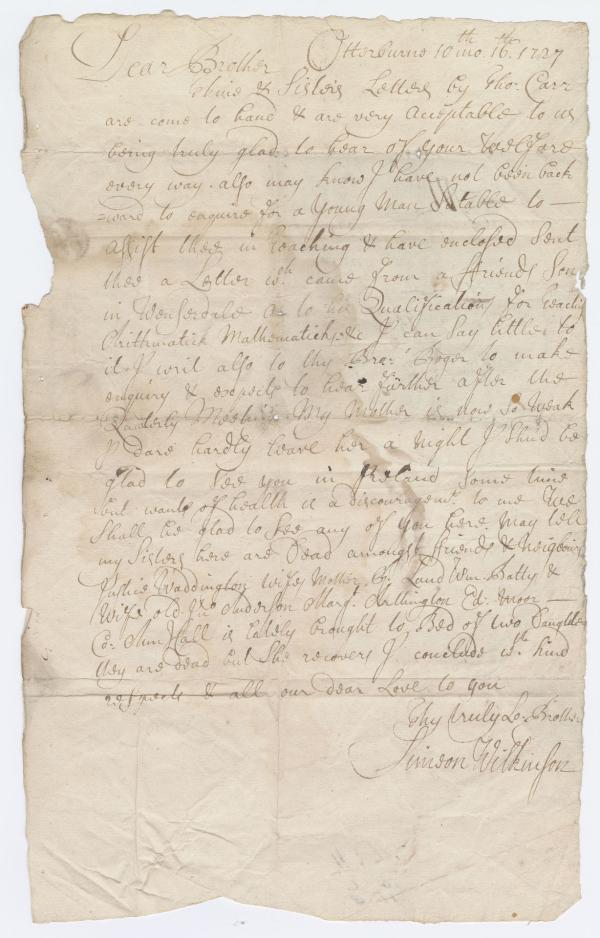 Otterburne 10th mo. 16th. 1727
Dear Brother
Thine & Sisters Letters by Tho: Carr
are come to hand & are very Acceptable to us
being truly glad to hear of your Welfare
every way. also may know I have not been back
=ward to enquire for a Young Man Sutable to —
assist thee in teaching & have enclosed Sent
thee a Letter wch. came from a ffriends Son
in Wenserdale as to his Qualifications for teaching
Arithmatick Mathematicks &c I can say little to
it I writ also to thy Bror: Roger to make
enquiry & expects to hear further after the
Quarterly Meeting My Mother is now so Weak
I dare hardly leave her a night I shu'd be
glad to see you in Ireland some time
but want of health is a discouragemt. to me We
shall be glad to see any of you here. May tell
my Sisters here are Dead amongst ffriends & Neigbours
Justice Waddington wifes Mother Land Wm. Batty &
Wife old Jno. Anderson Margt. Arthington Ed: Moor —
Co: Ann Hall is lately brought to Bed of two Daughters
they are dead but She recovers I conclude wth. kind
respects & all our dear Love to you
Thy truly Lo: Brother
Simeon Wilkinson